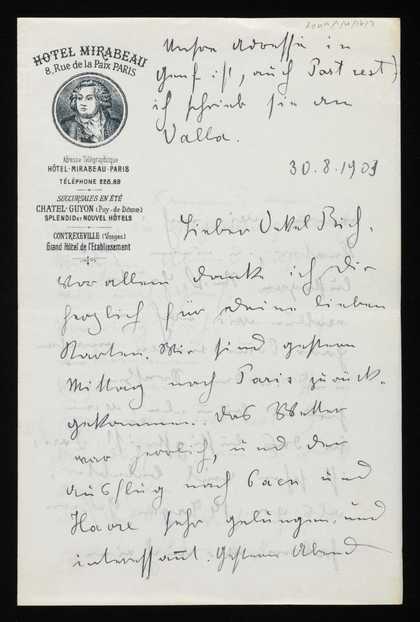 HOTEL MIRABEAU
8, Rue de la Paix PARIS
Adresse Télégraphique
HÔTEL-MIRABEAU-PARIS
TÉLÉPHONE 228.89
SUCCURSALES EN ÉTÉ
CHATEL-GUYON (Puy-de-Dôme)
SPLENDID ET NOUVEL HÔTELS
CONTREXEVILLE (Vosges)
Grand Hôtel de l'Etablissement
Unsre Adresse in
Genf ist, auch Post rest)
ich schrieb sie an
Valla.
30.8.1909
Lieber Onkel Rich.
Vor allem dank ich Dir
herzlich für deine lieben
Karten. Wir sind gestern
Mittag nach Paris zurück-
gekommen. Das Wetter
war herrlich, und der
Ausflug nach Caen und
Havre sehr gelungen und
interessant. Gestern Abend